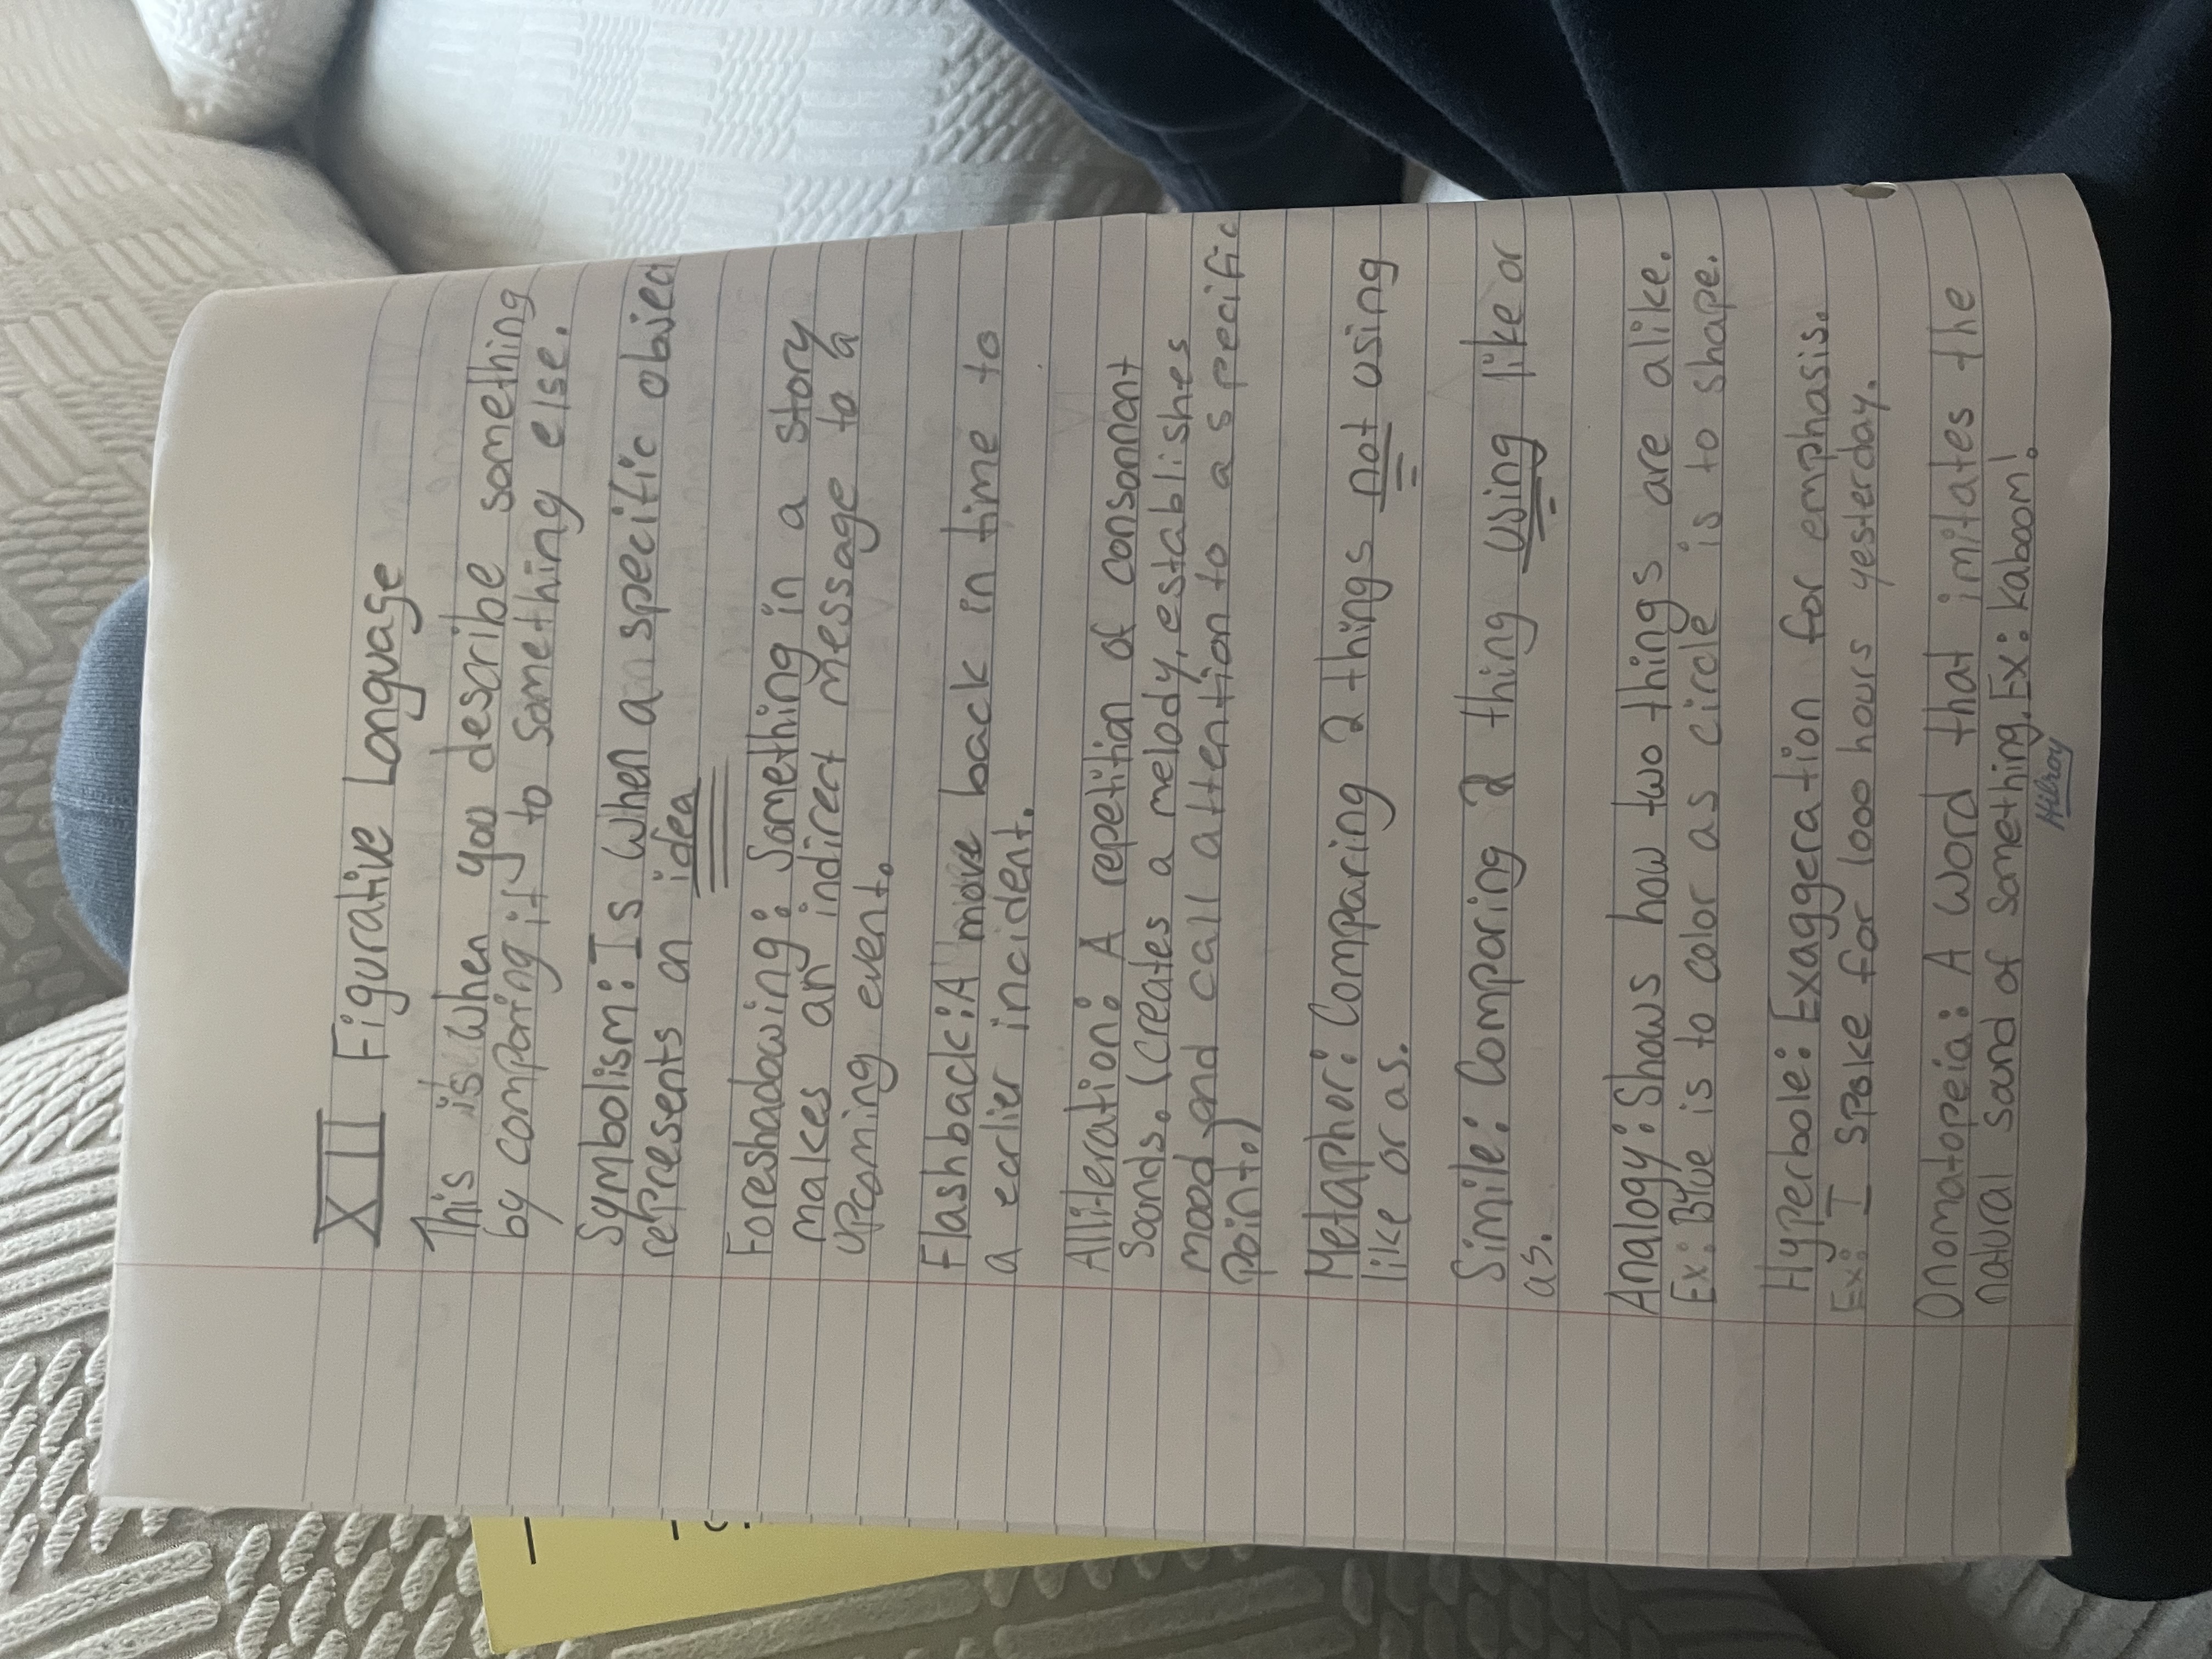 XII Figurative Language
This is when you describe something
by comparing it to something else.
Symbolism: Is when a specific object
represents an idea
Foreshadowing: Something in a story
makes an indirect message to a
upcoming event.
Flashback: A move back in time to
a earlier incident.
Alliteration: A repetition of consonnant
sounds. (Creates a melody, establishes
mood and call attention to a specific
point.)
Metaphor: Comparing 2 things not using
like or as.
Simile: Comparing 2 thing using like or
as.
Analogy: Shows how two things are alike.
Ex: Blue is to color as circle is to shape.
Hyperbole: Exaggeration for emphasis.
Ex: I spoke for 1000 hours yesterday.
Onomatopeia: A word that imitates the
natural sound of something. Ex: Kaboom!
Hilroy